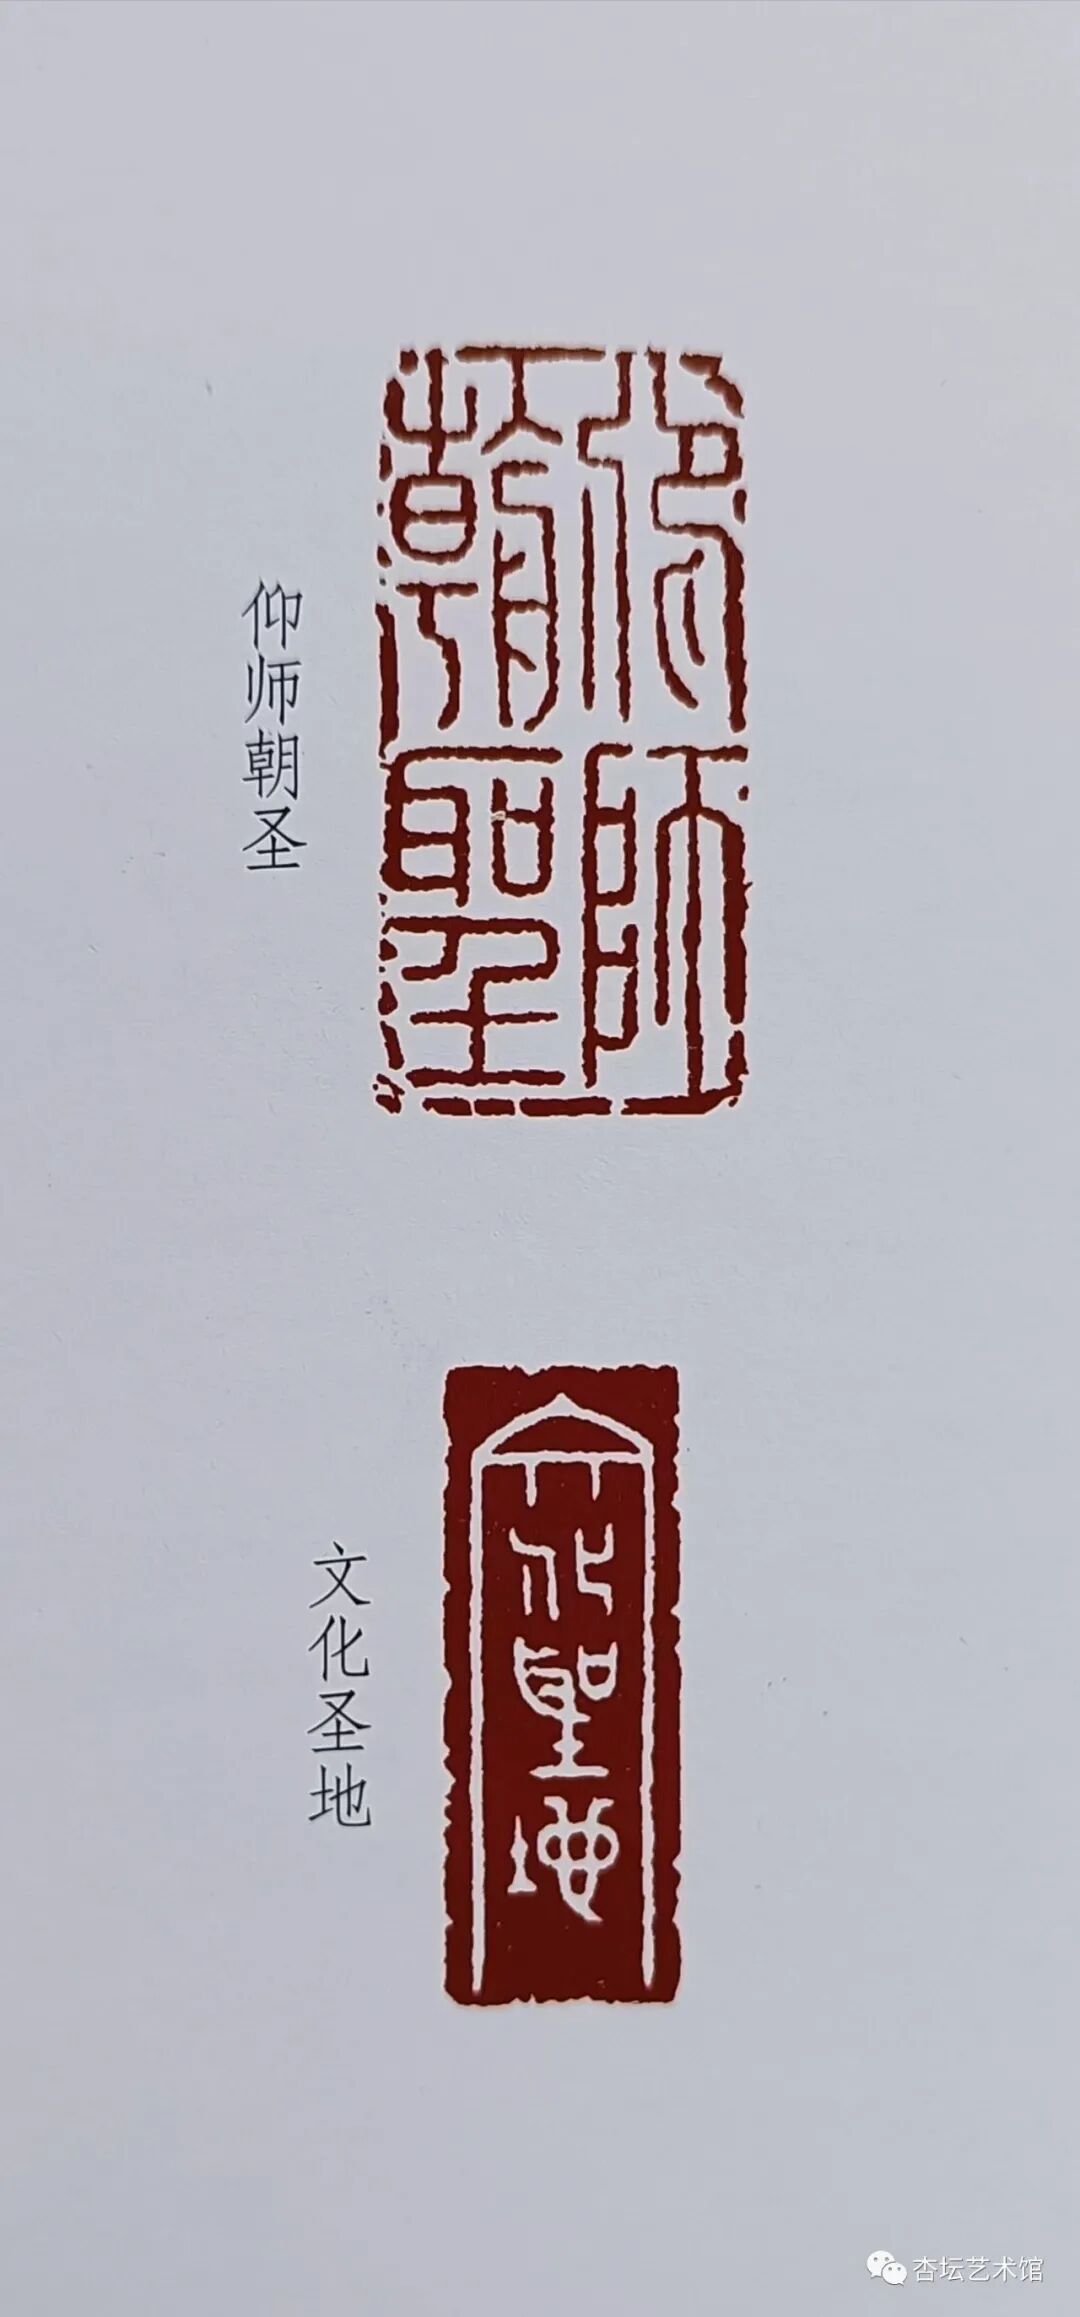 仰师朝圣
仰師
朝聖
文化圣地
文化聖地
杏坛艺术馆